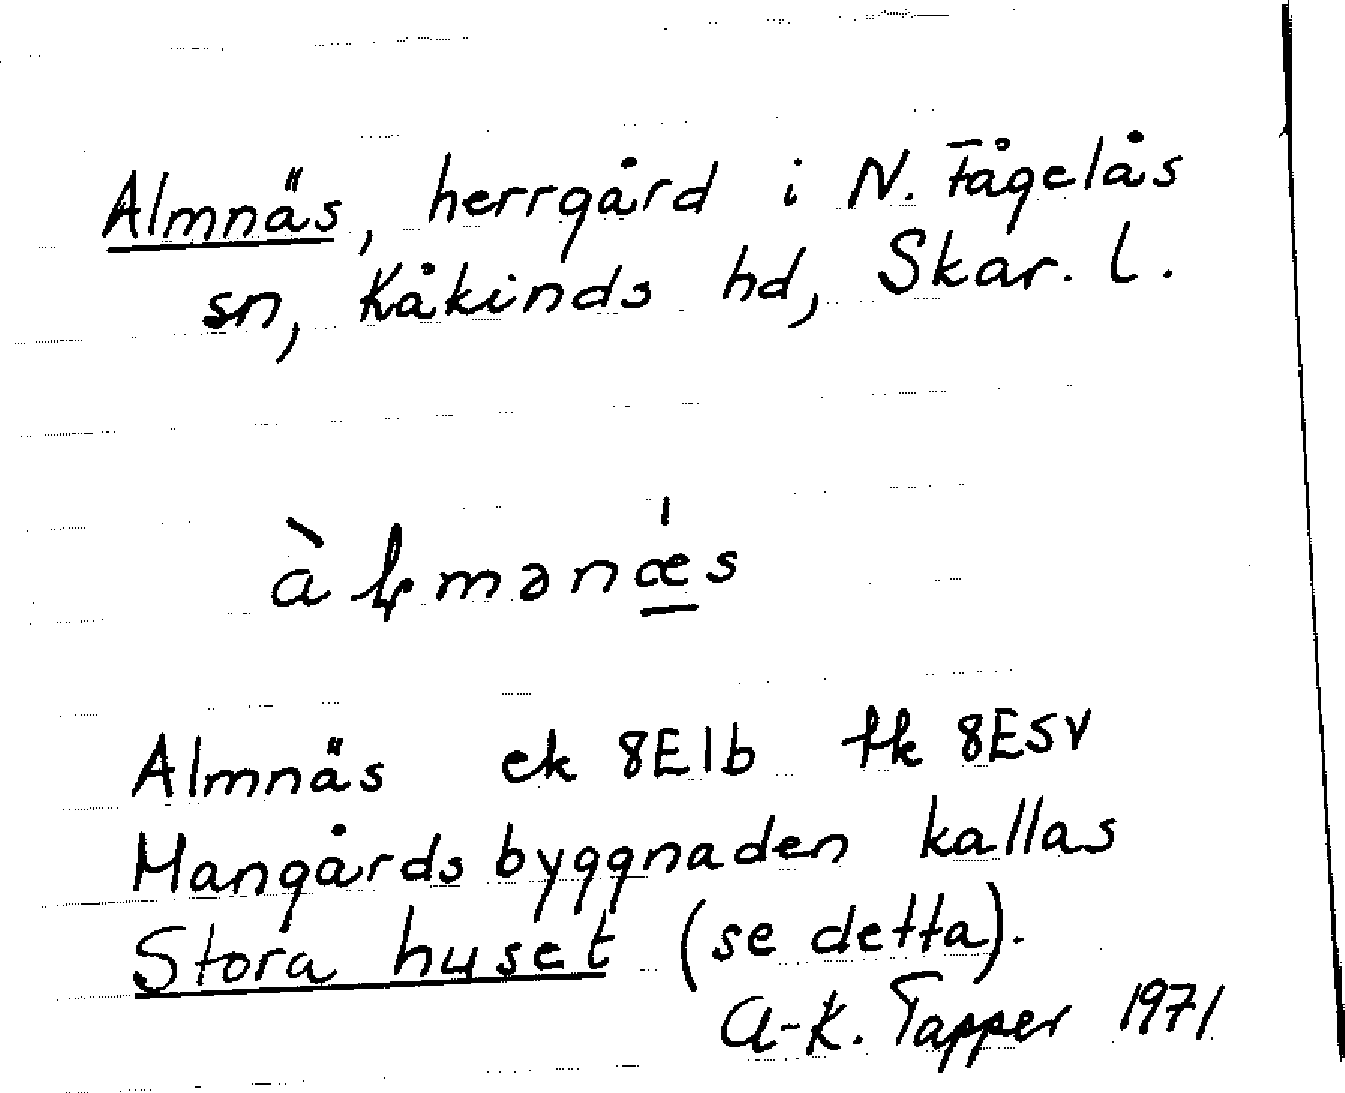 Almnäs, herrgård i N. Fågelås
sn, Kåkinds hd, Skar. l.
Almnäs ek 8E1b tk 8ESV
Mangårdsbyggnaden kallas
Stora huset (se detta).
A-K. Tapper 1971